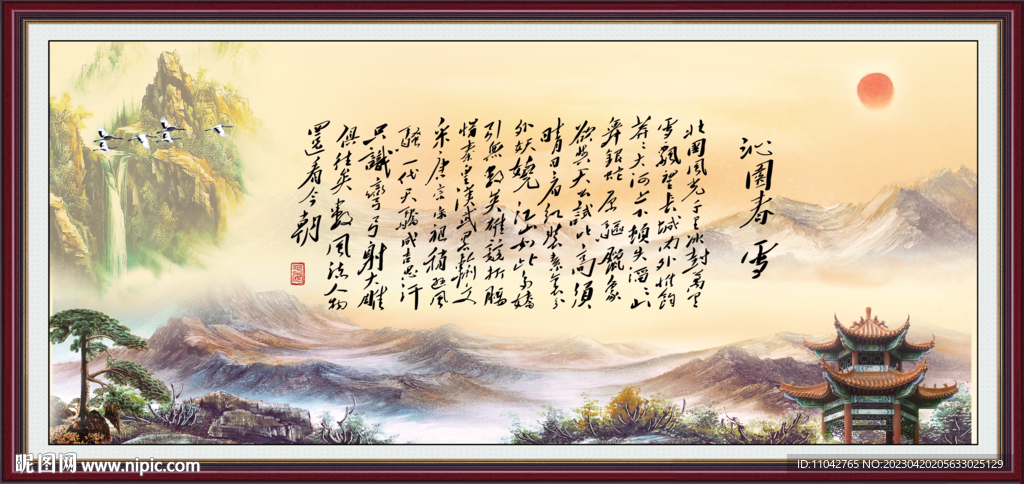 沁園春 雪
北国風光千里冰封萬里
雪飄望长城内外惟餘
莽々大河上下頓失滔々山
舞銀蛇原驅臘象
欲與天公試比高須
晴日看红裝素裹分
外妖嬈 江山如此多嬌
引無數英雄競折腰
惜秦皇漢武略輸文
采唐宗宋祖稍遜風
騷一代天驕成吉思汗
只識彎弓射大雕
俱往矣數風流人物
還看今朝
昵图网 www.nipic.com
ID:11042765 NO:20230420205633025129